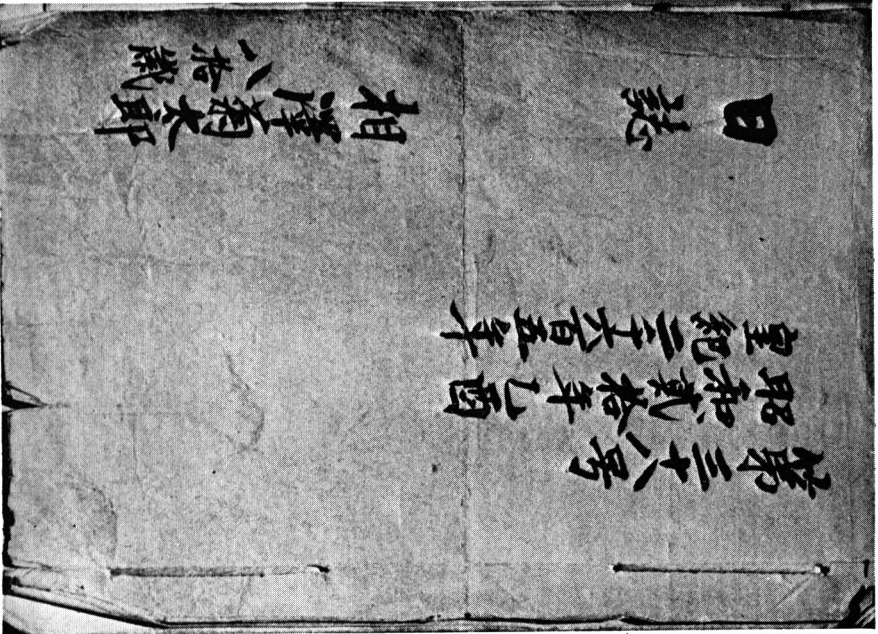 第三十八号
昭和貳拾年乙酉
皇紀二千六百五年
日誌
相澤菊太郎
八拾歳